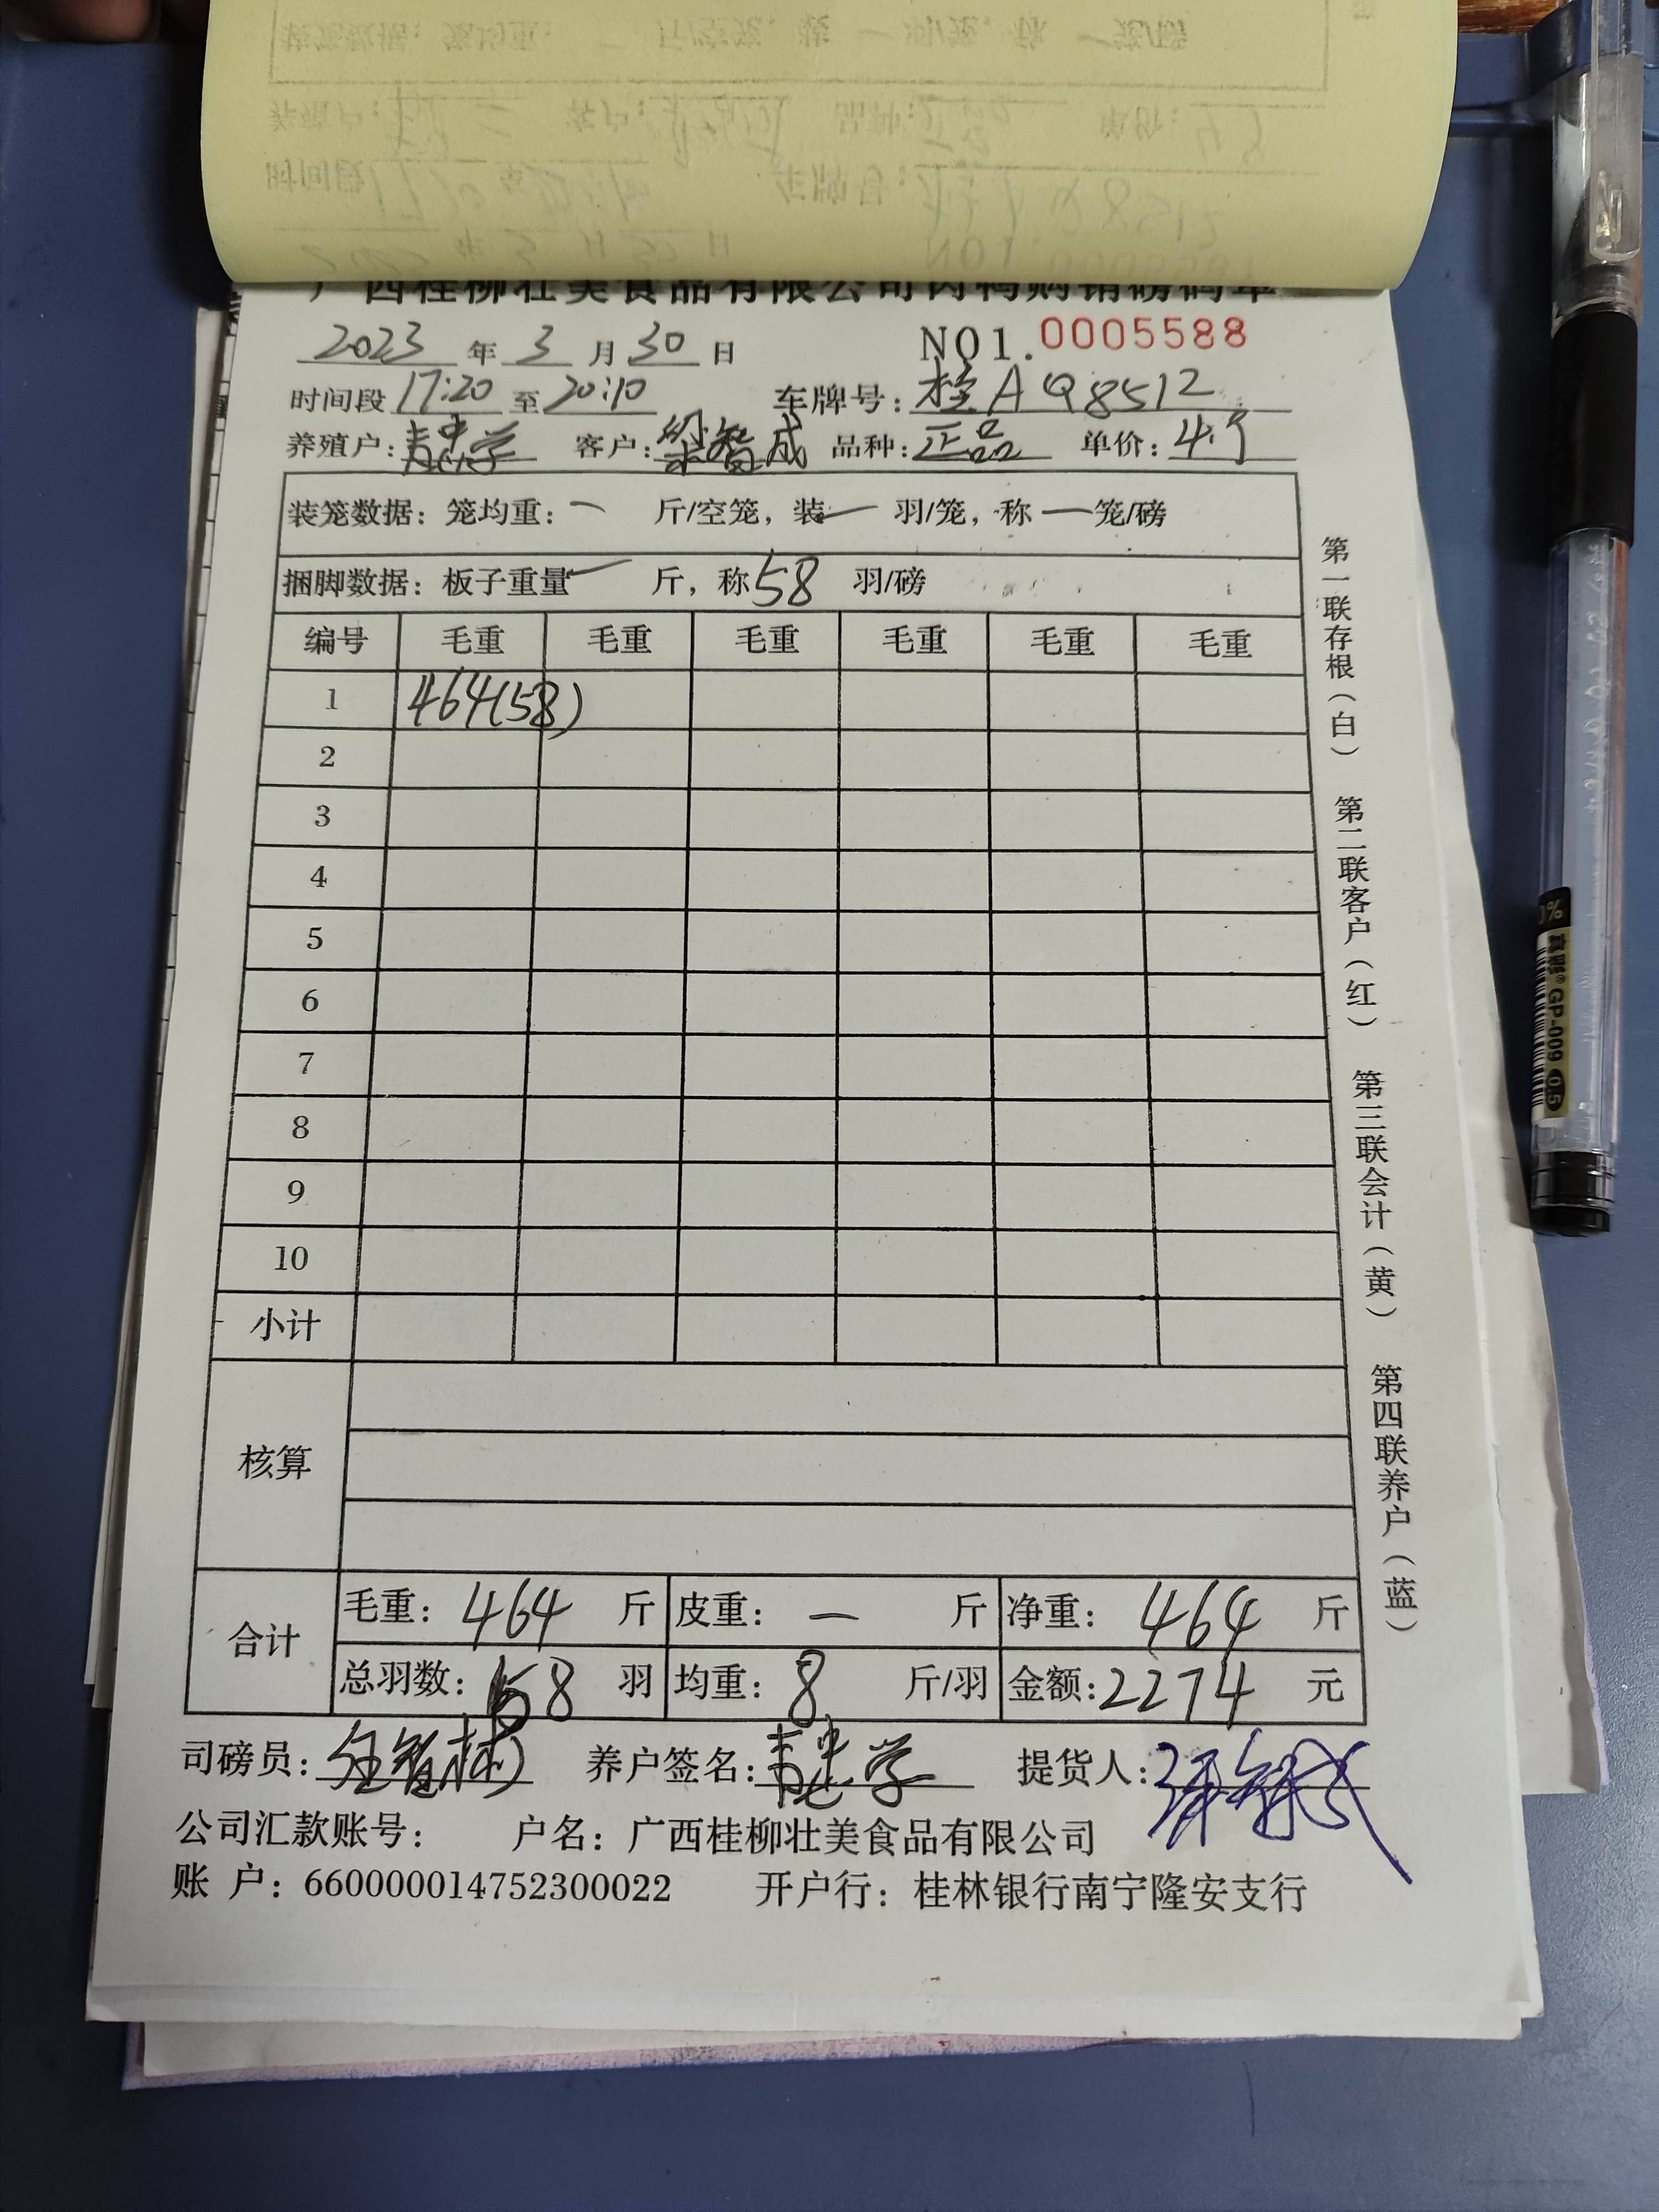 广西桂柳壮美食品有限公司肉鸭购销磅码单
2023 年 3 月 30 日 NO1.0005588
时间段 17:20 至 20:10 车牌号: 桂AQ8512
养殖户: 客户: 梁智成 品种: 正品 单价: 4.9
装笼数据: 笼均重: 一 斤/空笼, 装 一 羽/笼, 称 一 笼/磅
捆脚数据: 板子重量 一 斤, 称 58 羽/磅
编号 毛重 毛重 毛重 毛重 毛重 毛重
1 464(58)
2
3
4
5
6
7
8
9
10
小计
核算
合计 毛重: 464 斤 皮重: 一 斤 净重: 464 斤
总羽数: 58 羽 均重: 8 斤/羽 金额: 2274 元
司磅员: 养户签名: 提货人:
公司汇款账号: 户名: 广西桂柳壮美食品有限公司
账 户: 660000014752300022 开户行: 桂林银行南宁隆安支行
第一联存根(白) 第二联客户(红) 第三联会计(黄) 第四联养户(蓝)
真彩® GP-009 0.5